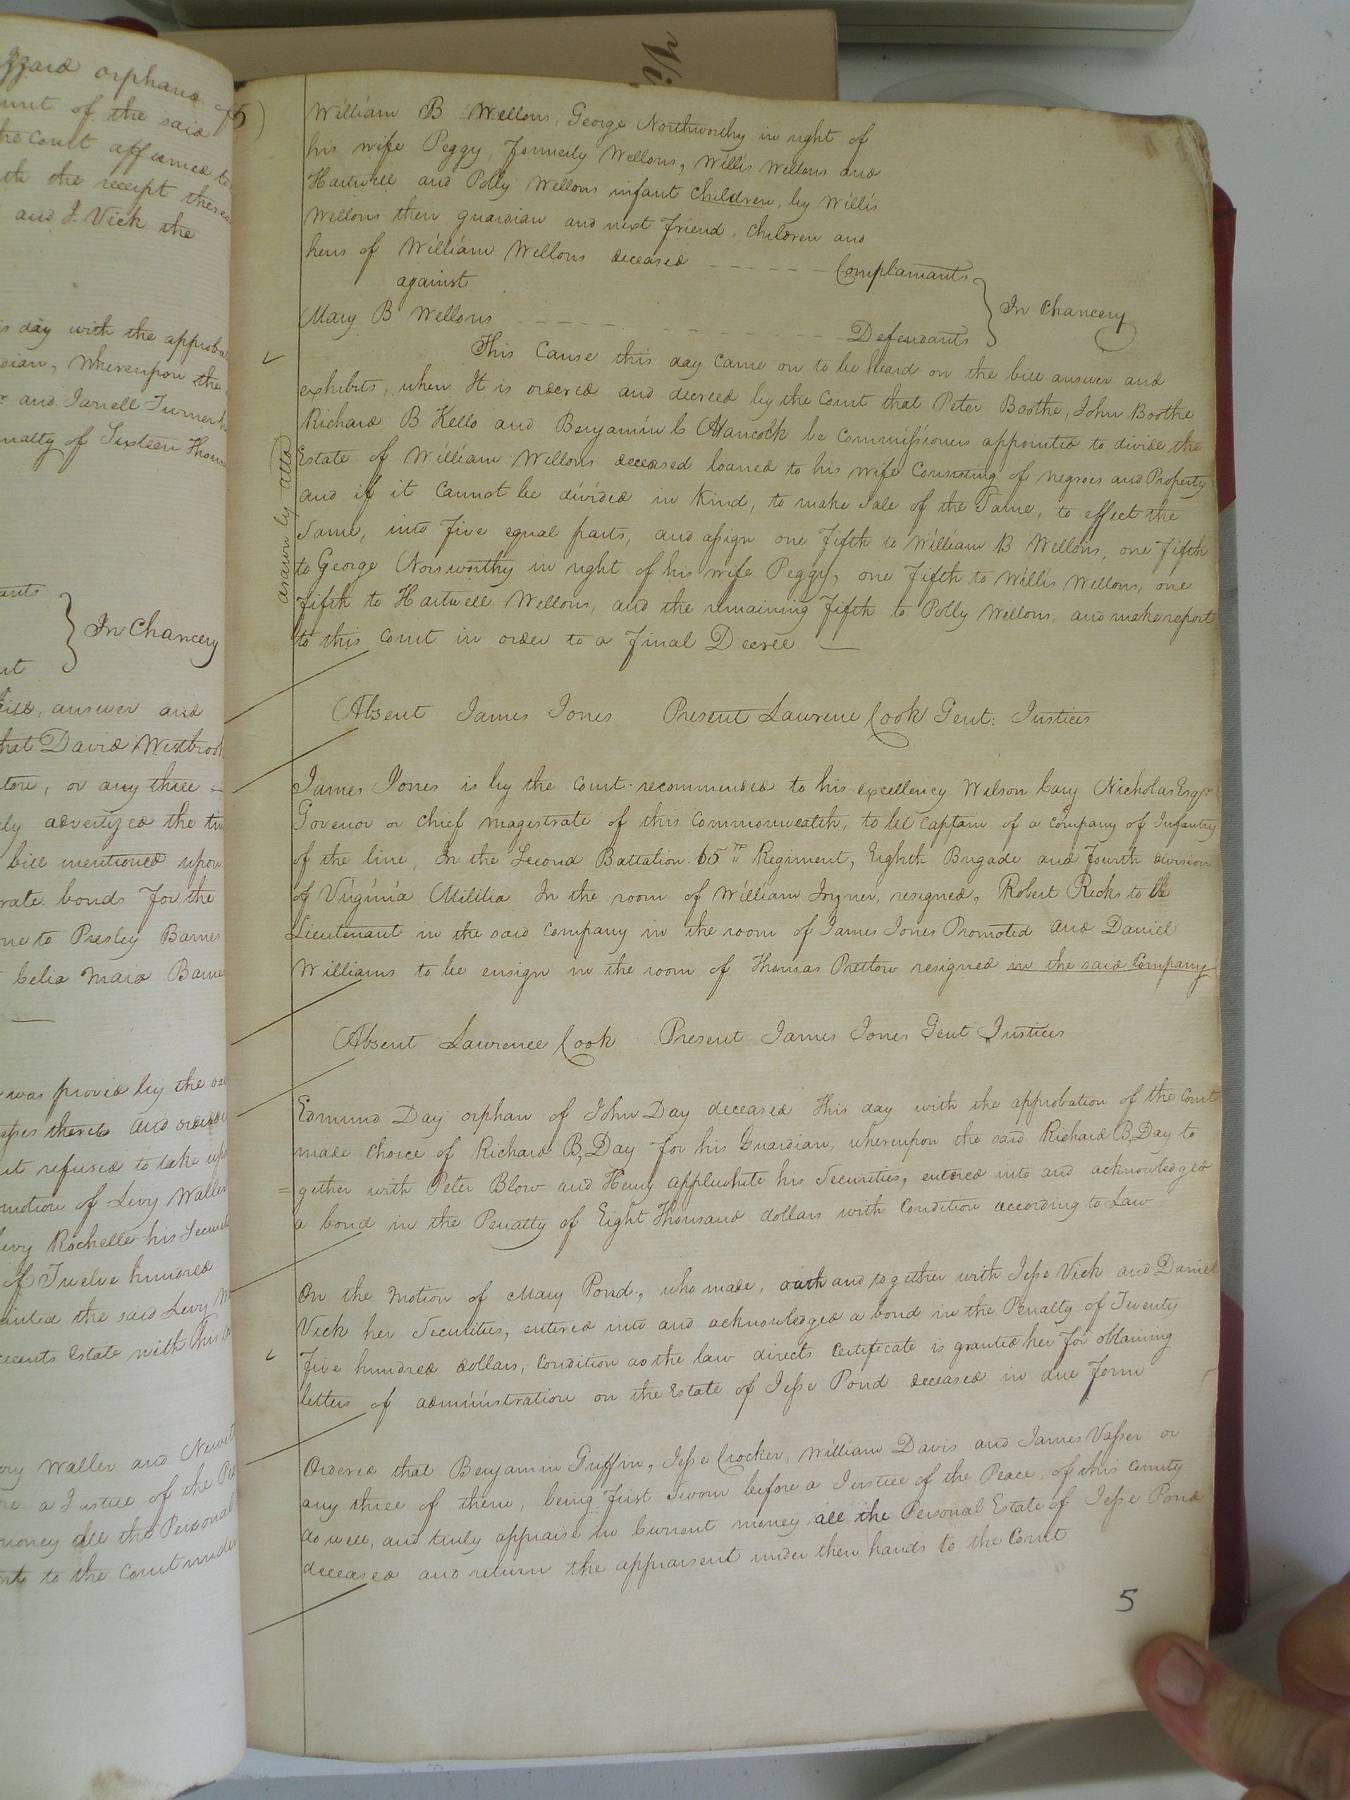 zzard orphans of
unt of the said
the Court affirmed to
ith the receipt thereof
and J. Vick the
s day with the approba
dian, Whereupon the
and Jarrell Turner
enalty of Sixteen Thous
ants
In Chancery
nt
Bill, answer and
that David Westbrook
tore, or any three
ly advertized the
bill mentioned upon
rate bonds for the
one to Presley Barnes
Celia Maria Barnes
was proved by the
esses thereto and ordered
it refused to take upon
motion of Levy Waller
Levy Rochelle his Securi
of Twelve hundred
ointed the said Levy
ecedents Estate with this
ory Waller and Newit
re a Justice of the
money all the Personal
nt to the Court under
5)
William B Wellons, George Northworthy in right of
his wife Peggy, formerly Wellons, Willis Wellons and
Hartwell and Polly Wellons infant Children, by Willis
Wellons their guardian and next friend, children and
heirs of William Wellons deceased - - - - - Complainants
against
In Chancery
Mary B Wellons - - - - - - - - - - Defendants
This Cause this day came on to be heard on the bill answer and
exhibits, when It is ordered and decreed by the Court that Peter Boothe, John Boothe
Richard B Kello and Benjamin C Hancock be Commissioners appointed to divide the
Estate of William Wellons deceased loaned to his wife Consisting of negroes and Property
and if it Cannot be divided in Kind, to make Sale of the Same, to effect the
Same, into five equal parts, and assign one fifth to William B Wellons, one fifth
to George Norsworthy in right of his wife Peggy, one fifth to Willis Wellons, one
fifth to Hartwell Wellons, and the remaining fifth to Polly Wellons, and make report
to this Court in order to a final Decree
drawn by atto
Absent James Jones Present Lawrence Cook Gent: Justices
James Jones is by the Court recommended to his excellency Wilson Cary Nicholas Esqr
Govenor or Chief Magistrate of this Commonwealth, to be Captain of a Company of Infantry
of the line, In the Second Battalion 65th Regiment, Eighth Brigade and fourth division
of Virginia Militia In the room of William Joyner, resigned, Robert Ricks to be
Lieutenant in the said Company in the room of James Jones Promoted and Daniel
Williams to be ensign in the room of Thomas Pretlow resigned in the said Company
Absent Lawrence Cook Present James Jones Gent Justices
Edmund Day orphan of John Day deceased This day with the approbation of the Court
made Choice of Richard B, Day for his Guardian, whereupon the said Richard B, Day to
= gether with Peter Blow and Henry Applewhite his Securities, entered into and acknowledged
a bond in the Penalty of Eight Thousand dollars with Condition according to Law
On the Motion of Mary Pond, who made, oath and together with Jesse Vick and Daniel
Vick her Securities, entered into and acknowledged a bond in the Penalty of Twenty
five hundred dollars, Condition as the law directs Certificate is granted her for obtaining
letters of administration on the Estate of Jesse Pond deceased in due form
Ordered that Benjamin Griffin, Jesse Crocker, William Davis and James Vasser or
any three of them, being first Sworn before a Justice of the Peace, of this County
do well, and truly appraise in Current money all the Personal Estate of Jesse Pond
deceased and return the appraisent under their hands to the Court
5